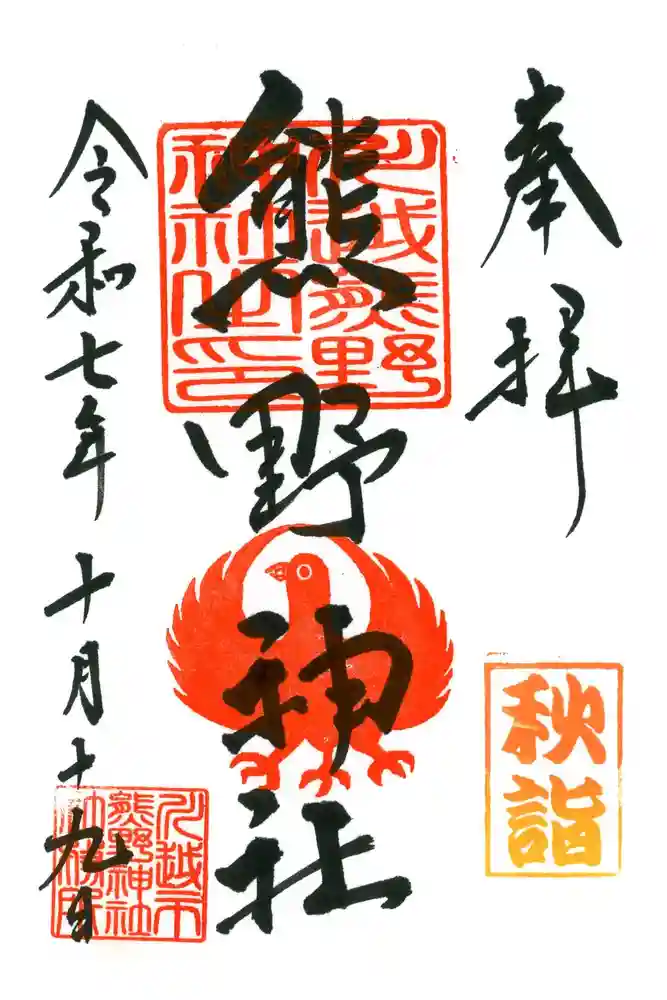 奉拝
川越熊野
神社之印
熊野神社
秋詣
令和七年十月十九日
川越市
熊野神社